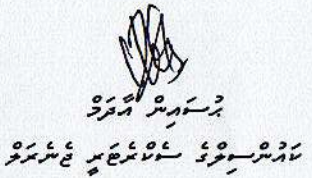 ޙުސައިން އާދަމް
ކައުންސިލްގެ ސެކްރެޓަރީ ޖެނެރަލް